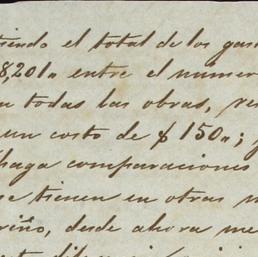 tiendo el total de los gas
8,201„ entre el numer
n todas las obras, re
un costo de $ 150„;
haga comparaciones
se tienen en otras
riño, desde ahora me